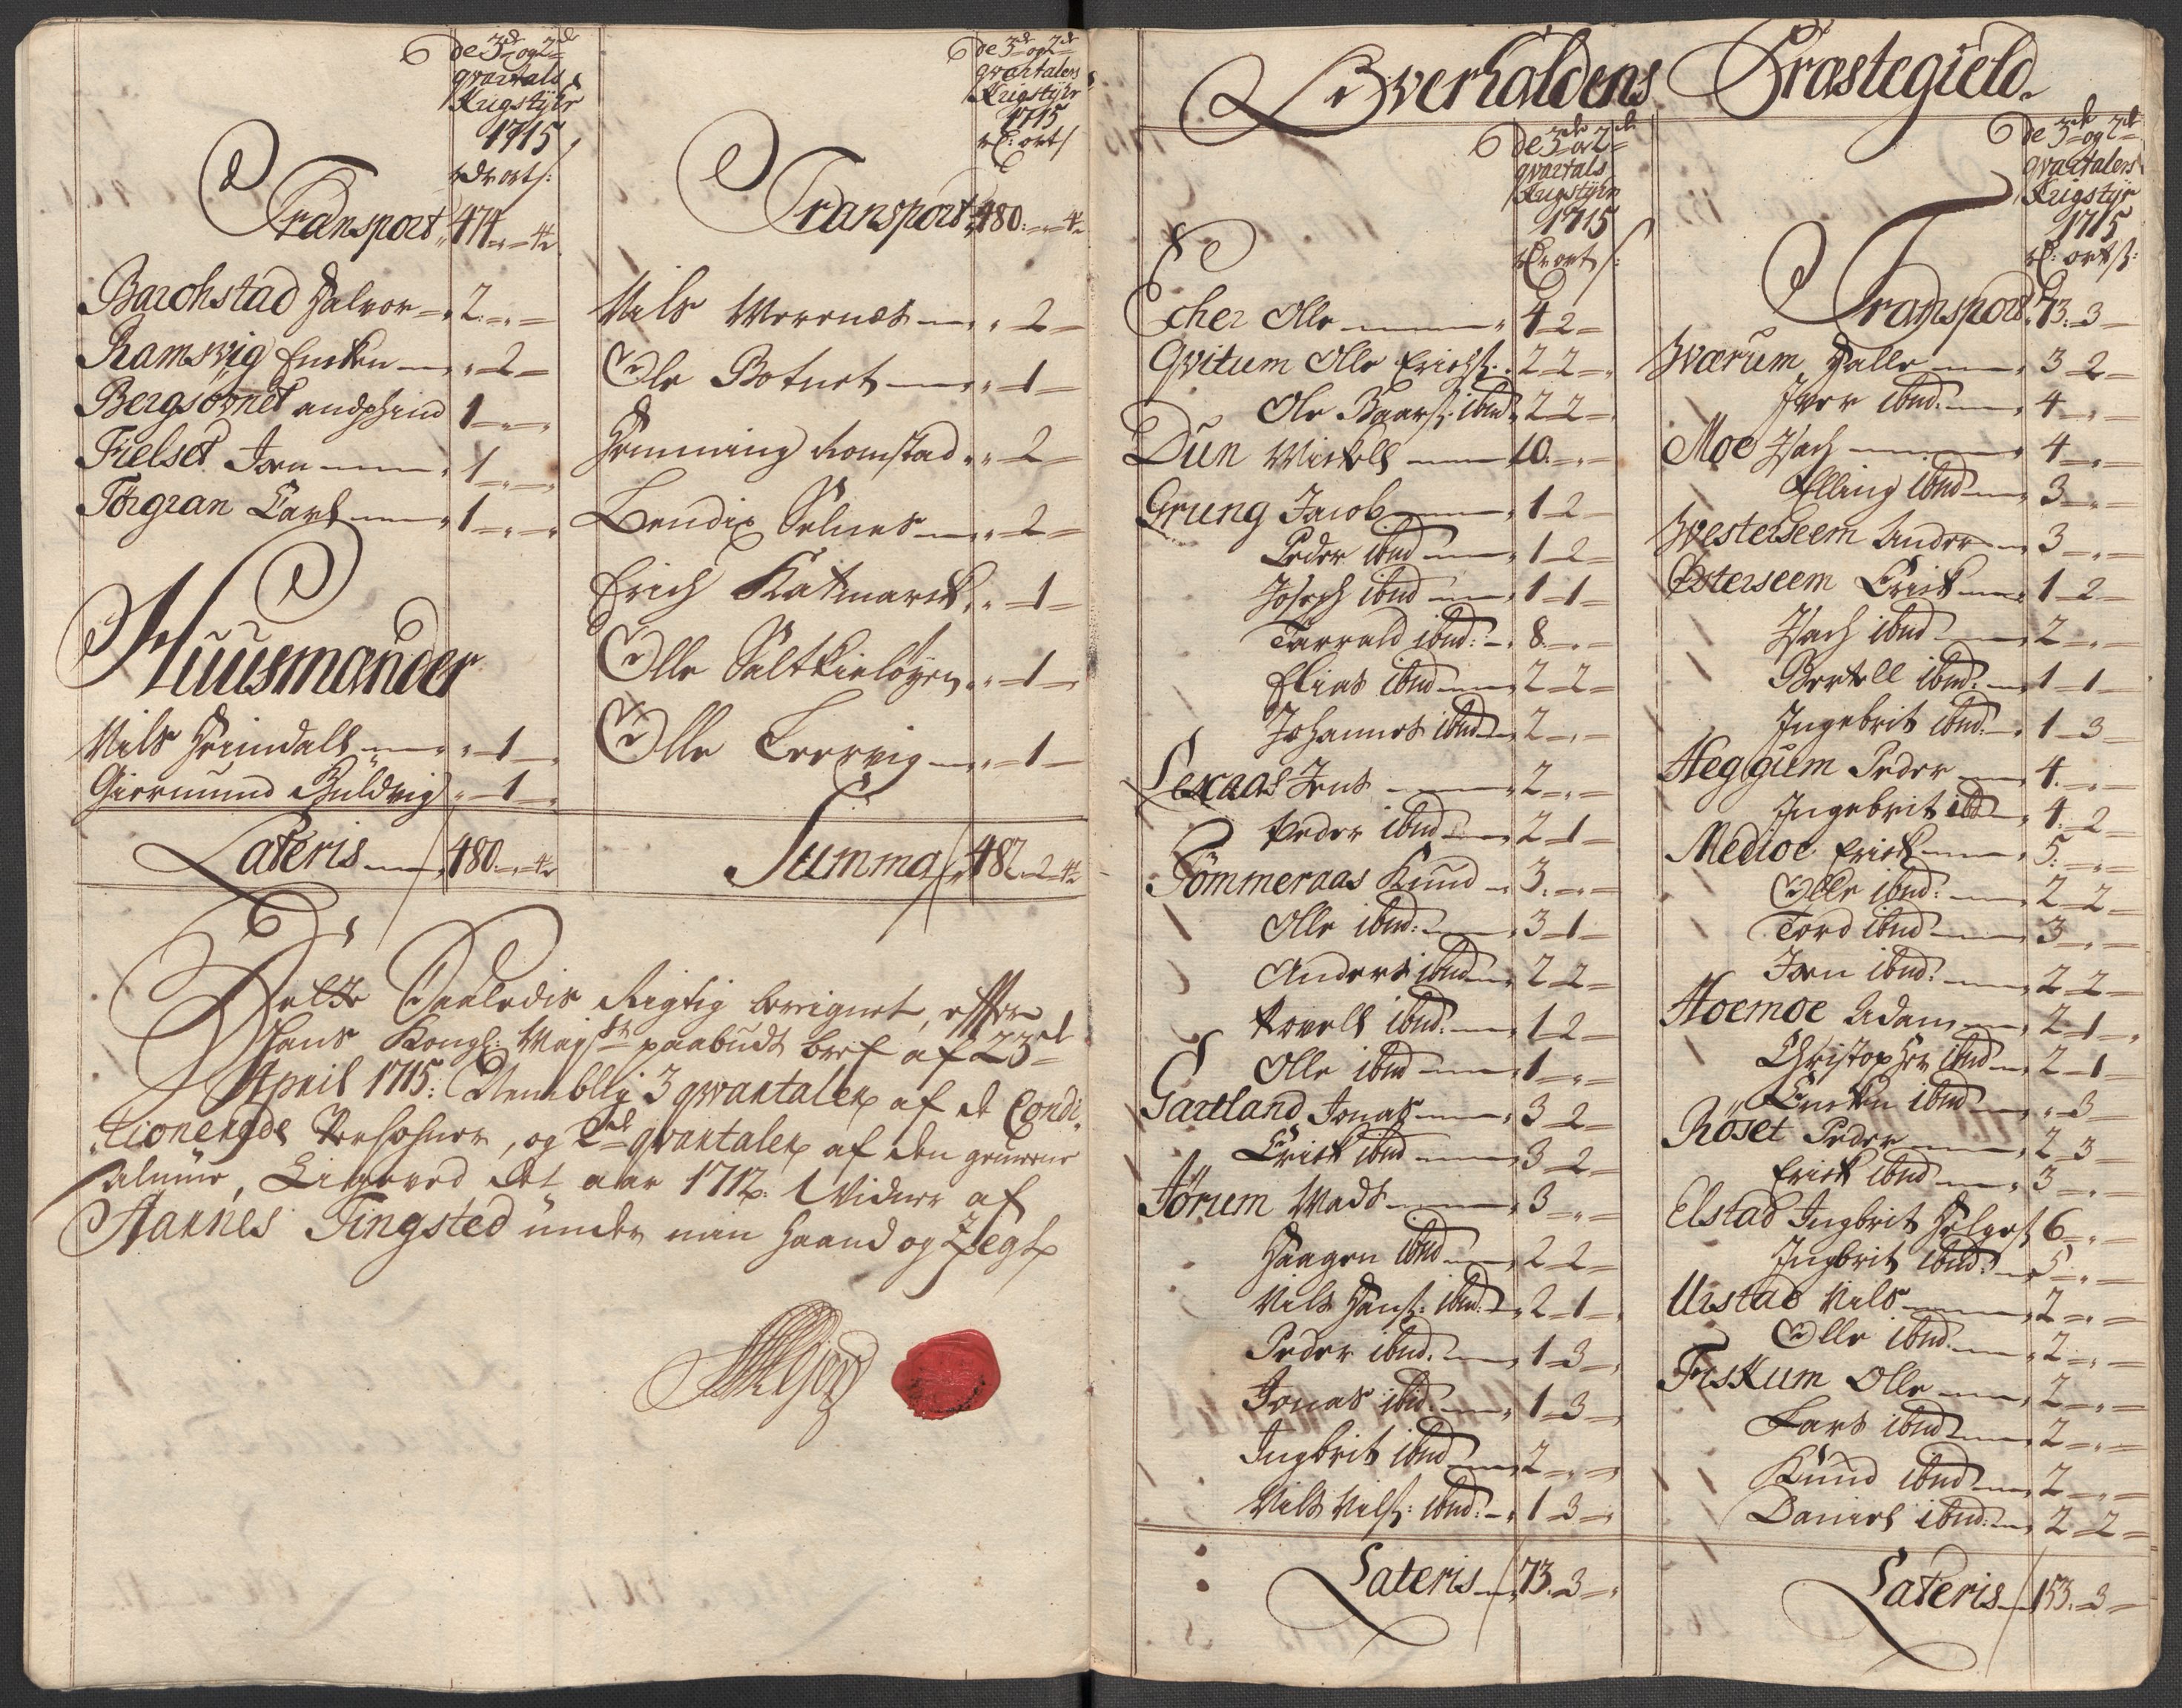 de 3de og 2de
qvartals
Krigstÿhr
1715
rdr ort s:
Transport 474 „ 4
Barohstad Halvor 2 „
Ramsvig Ensken „ 2
Bergsövnet andphind 1 „
Fielset Jørn 1 „
Törgran Carl 1 „
Huusmænder
Nils Heimdall „ 1
Giermund Buldvig „ 1
Lateris 480 „ 4
de 3de og 2de
qvartalers
Krigstÿhr
1715
rd: ort s
Transport 480 „ 4
Nils Werenes „ 2
Ole Botnet „ 1
Hemming Romstad „ 2
Bendix Selnes „ 2
Erich Katmarck „ 1
Olle Saltkieløyen „ 1
Olle Leervig „ 1
Summa 482 2 4
Dette Saaledis Rigtig berregnet, efter
Hans Kongl: Mayts paabudt bref af 23de
April 1715: Nemblig 3 qvartaler af de Condi
tionerede Persohner, og 2de qvartaler af den gemeene
almue, Ligeved det aar 1712. Vidner af
Aarnes Tingsted under min Haand og Zegl
Overhaldens Præstegield
de 3de og 2de
qvartals
Krigstÿhr
1715
rdr ort s:
Echer Olle 4 2
Qvitum Olle Erichs: 2 2
Ole Baars: ibid 2 2
Dun Mickell 10 „
Grung Jacob 1 2
Peder ibid 1 2
Joseph ibid 1 1
Tarrald ibid: 8 „
Elias ibid 2 2
Johannes ibid 2 „
Lexaas Jens 2 „
Peder ibid 2 1
Tömmeraas Knud 3 „
Olle ibid: 3 1
Anders ibid 2 2
Povell ibid: 1 2
Olle ibid 1 „
Gartland Jonas 3 2
Erick ibid 3 2
Jörum Mads 3 „
Haagen ibid 2 2
Nils Hans: ibid: 2 1
Peder ibid. 1 3
Jonas ibid. 1 3
Ingbrit ibid 2 „
Nils Nils: ibid: 1 3
Lateris 73 3
de 3de og 2de
qvartalers
Krigstÿr
1715
rd: ort s:
Transport 73 3
Værum Halle 3 2
Iver ibid: 4 „
Moe Isach 4 „
Elling ibid 3 „
Westerseem Ander 3 „
Østerseem Erick 1 2
Isach ibid 2 „
Bertell ibid: 1 1
Ingebrit ibid: 1 3
Heggum Peder 4 „
Ingebrit ibid 4 2
Mediøe Erick 5 „
Olle ibid: 2 2
Tord ibid 3 „
Jørn ibid: 2 2
Moemoe Adam 2 1
Christopher ibid 2 1
Ensken ibid „ 3
Röset Peder 2 3
Erick ibid 3 „
Elstad Ingbrit Helges: 6 „
Ingbrit ibid: 5 „
Urstad Nils 2 „
Olle ibid. 2 „
Fiskum Olle 2 „
Lars ibid 2 „
Knud ibid 2 „
Daniel ibid: 2 2
Lateris 153 3